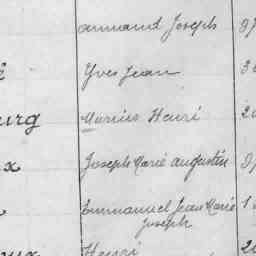 Armand Joseph
Yves Jean
Maurice Henri
Joseph Marie Augustin
Emmanuel Jean Marie
Joseph
Henri